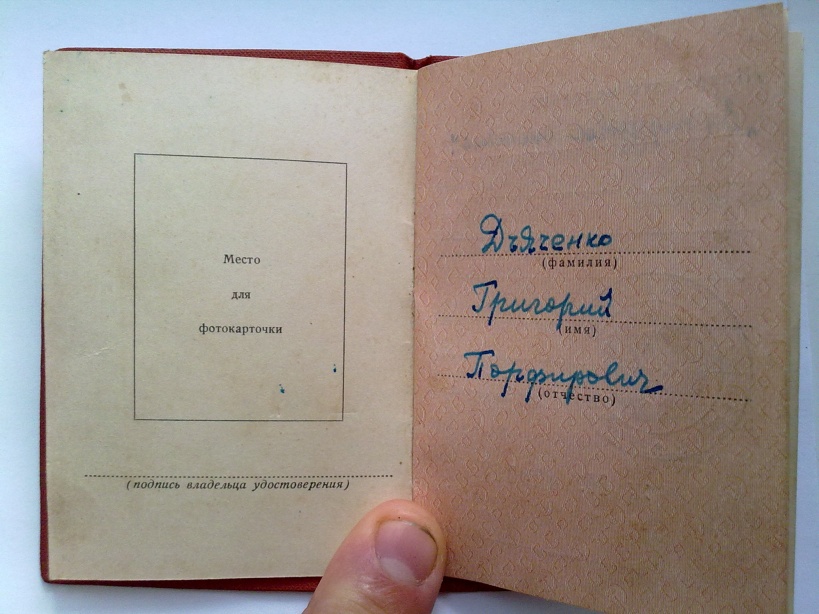 Место
для
фотокарточки
(подпись владельца удостоверения)
Дъяченко
(фамилия)
Григорий
(имя)
Порфирович
(отчество)